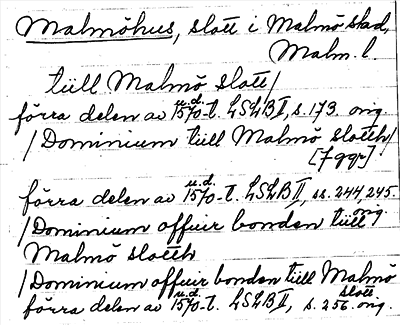 Malmöhus, slott i Malmö stad,
Malm. l.
tüll Malmö slott/
förra delen av 1570-t. LSLB II, s. 173. orig.
u.d.
/Dominium tüll Malmö slotth/
[7 ggr]
förra delen av 1570-t. LSLB II, ss. 244, 245.
u.d.
orig.
/Dominium offuir bonden tüll
Malmö slotth
/Dominium offuir bonden tüll Malmö
slott
förra delen av 1570-t. LSLB II, s. 256. orig.
u.d.